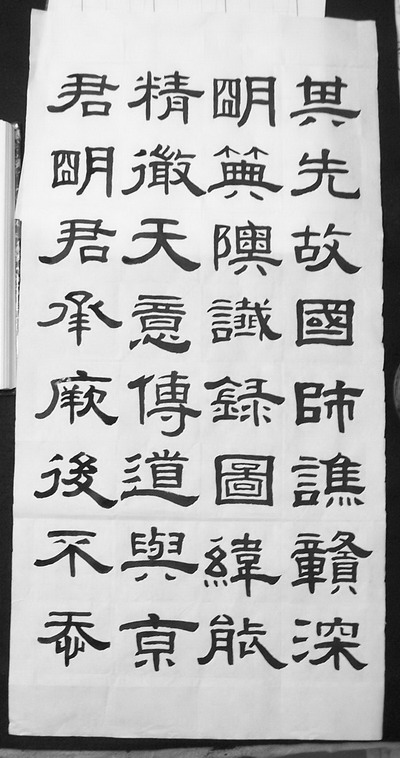 其先故國師譙贛深
明典隩讖錄圖緯能
精微天意傳道與京
君明君承厥後不忝